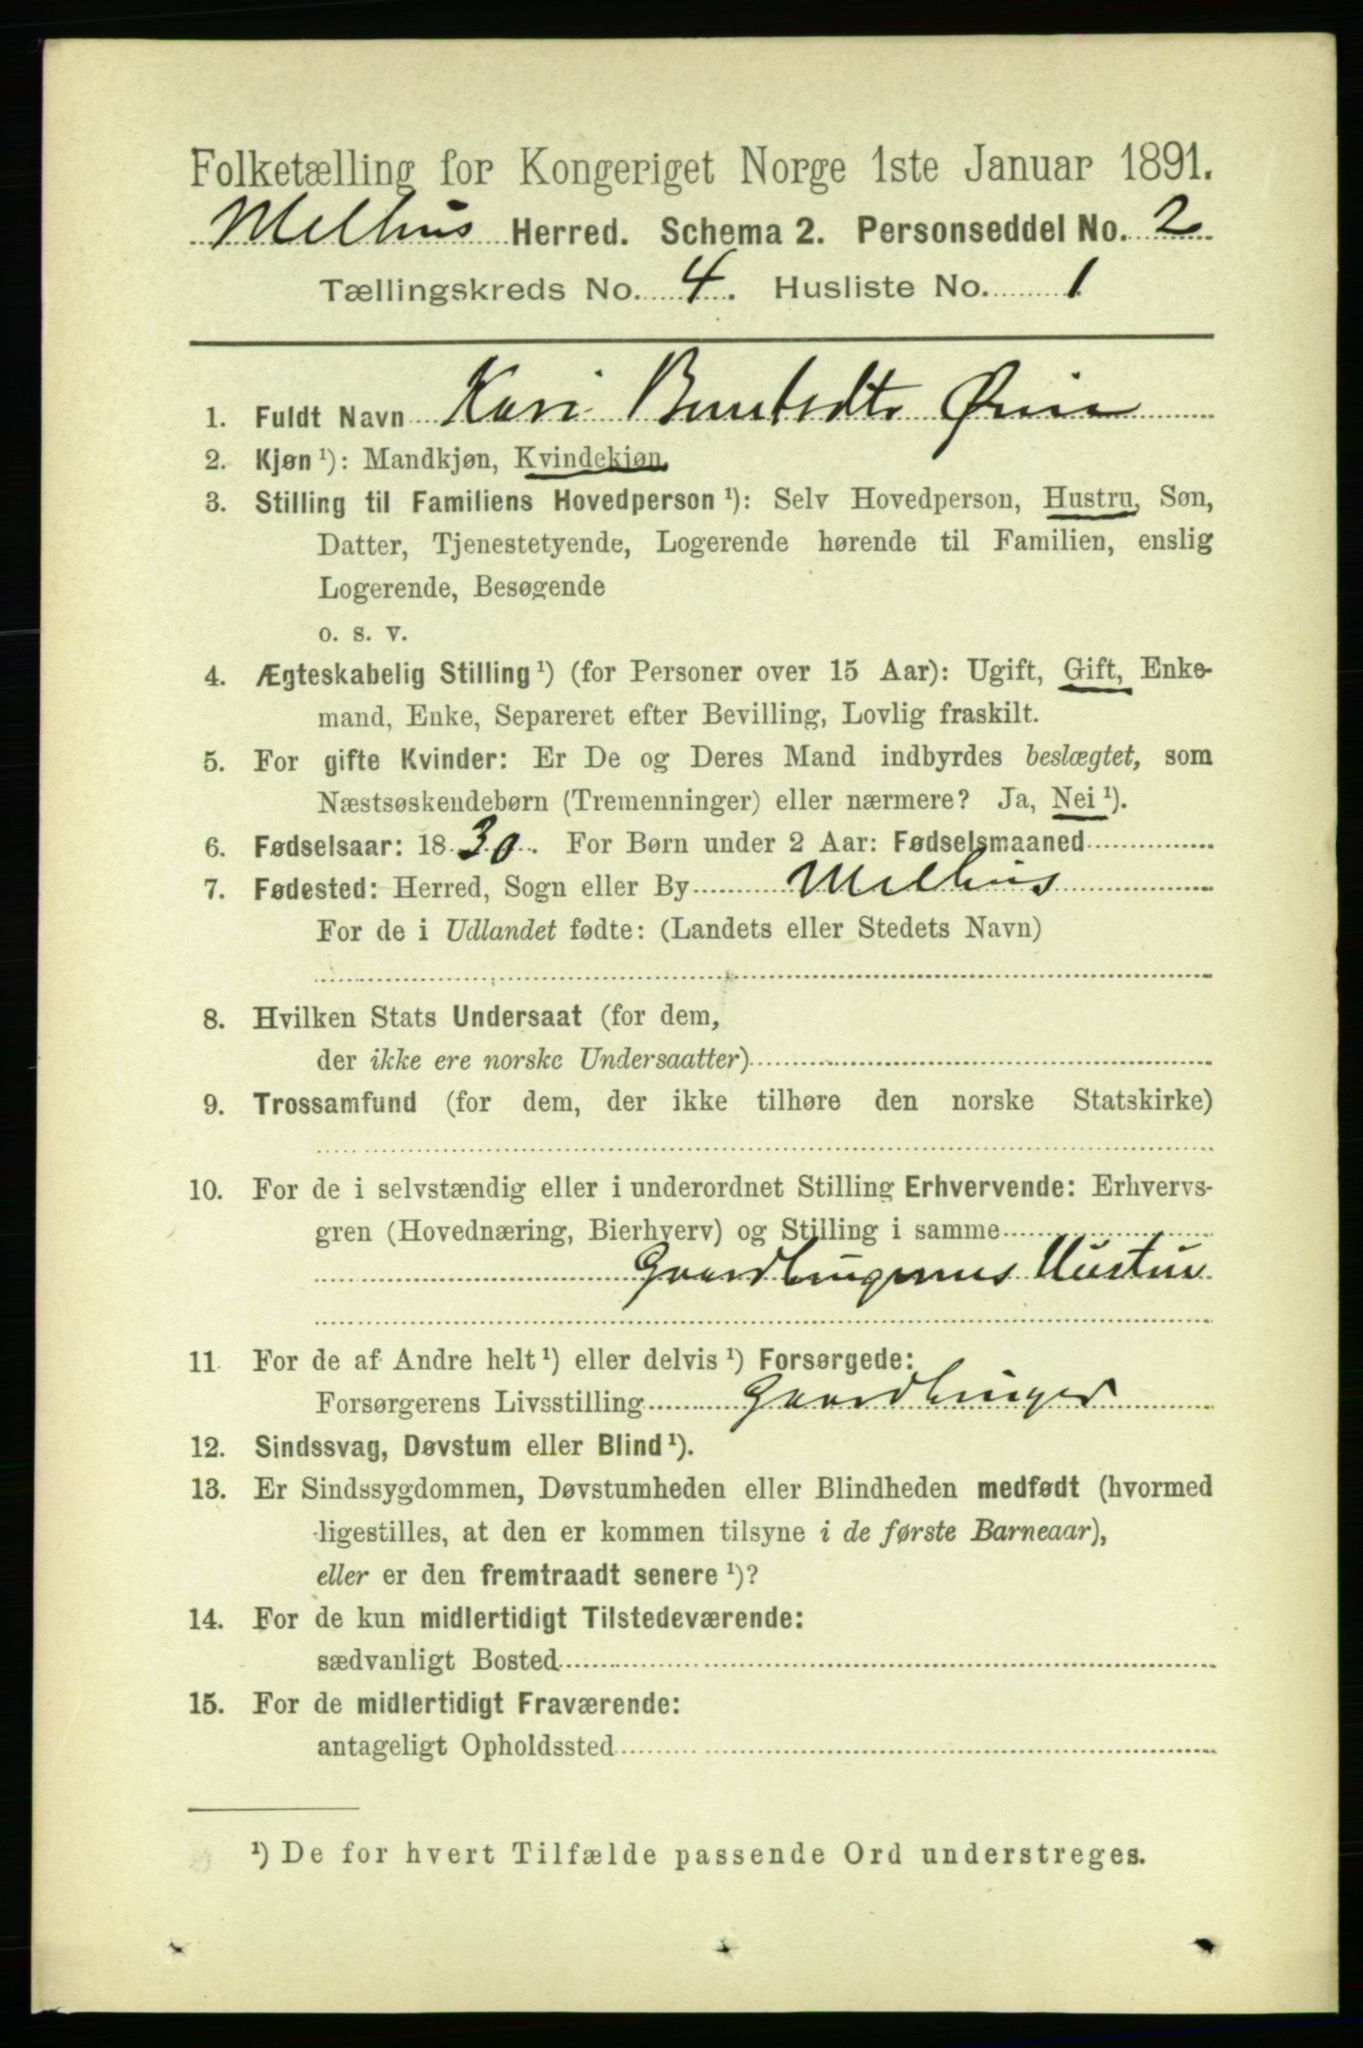 Folketælling for Kongeriget Norge 1ste Januar 1891.
Melhus Herred. Schema 2. Personseddel No. 2
Tællingskreds No. 4. Husliste No. 1
1. Fuldt Navn Kari
2. Kjøn ¹): Mandkjøn, Kvindekjøn.
3. Stilling til Familiens Hovedperson ¹): Selv Hovedperson, Hustru, Søn,
Datter, Tjenestetyende, Logerende hørende til Familien, enslig
Logerende, Besøgende
o. s. v.
4. Ægteskabelig Stilling ¹) (for Personer over 15 Aar): Ugift, Gift, Enke-
mand, Enke, Separeret efter Bevilling, Lovlig fraskilt.
5. For gifte Kvinder: Er De og Deres Mand indbyrdes beslægtet, som
Næstsøskendebørn (Tremenninger) eller nærmere? Ja, Nei ¹).
6. Fødselsaar: 1830. For Børn under 2 Aar: Fødselsmaaned
7. Fødested: Herred, Sogn eller By Melhus
For de i Udlandet fødte: (Landets eller Stedets Navn)
8. Hvilken Stats Undersaat (for dem,
der ikke ere norske Undersaatter)
9. Trossamfund (for dem, der ikke tilhøre den norske Statskirke)
10. For de i selvstændig eller i underordnet Stilling Erhvervende: Erhvervs-
gren (Hovednæring, Bierhverv) og Stilling i samme
Gaardbrugerens Hustru
11 For de af Andre helt ¹) eller delvis ¹) Forsørgede:
Forsørgerens Livsstilling Gaardbruger
12. Sindssvag, Døvstum eller Blind ¹).
13. Er Sindssygdommen, Døvstumheden eller Blindheden medfødt (hvormed
ligestilles, at den er kommen tilsyne i de første Barneaar),
eller er den fremtraadt senere ¹)?
14. For de kun midlertidigt Tilstedeværende:
sædvanligt Bosted
15. For de midlertidigt Fraværende:
antageligt Opholdssted
¹) De for hvert Tilfælde passende Ord understreges.